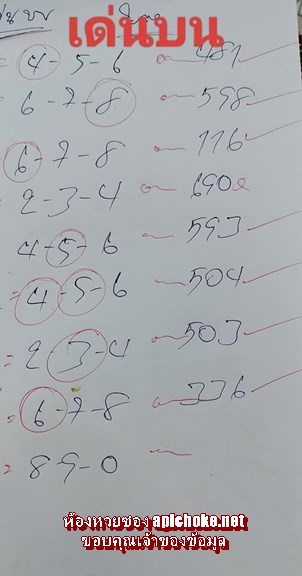 เด่นบน
4-5-6 481
6-7-8 598
6-7-8 116
2-3-4 690
4-5-6 593
4-5-6 504
2-3-4 503
6-7-8 336
8-9-0
ห้องหวยซอง apichoke.net
ขอบคุณเจ้าของข้อมูล